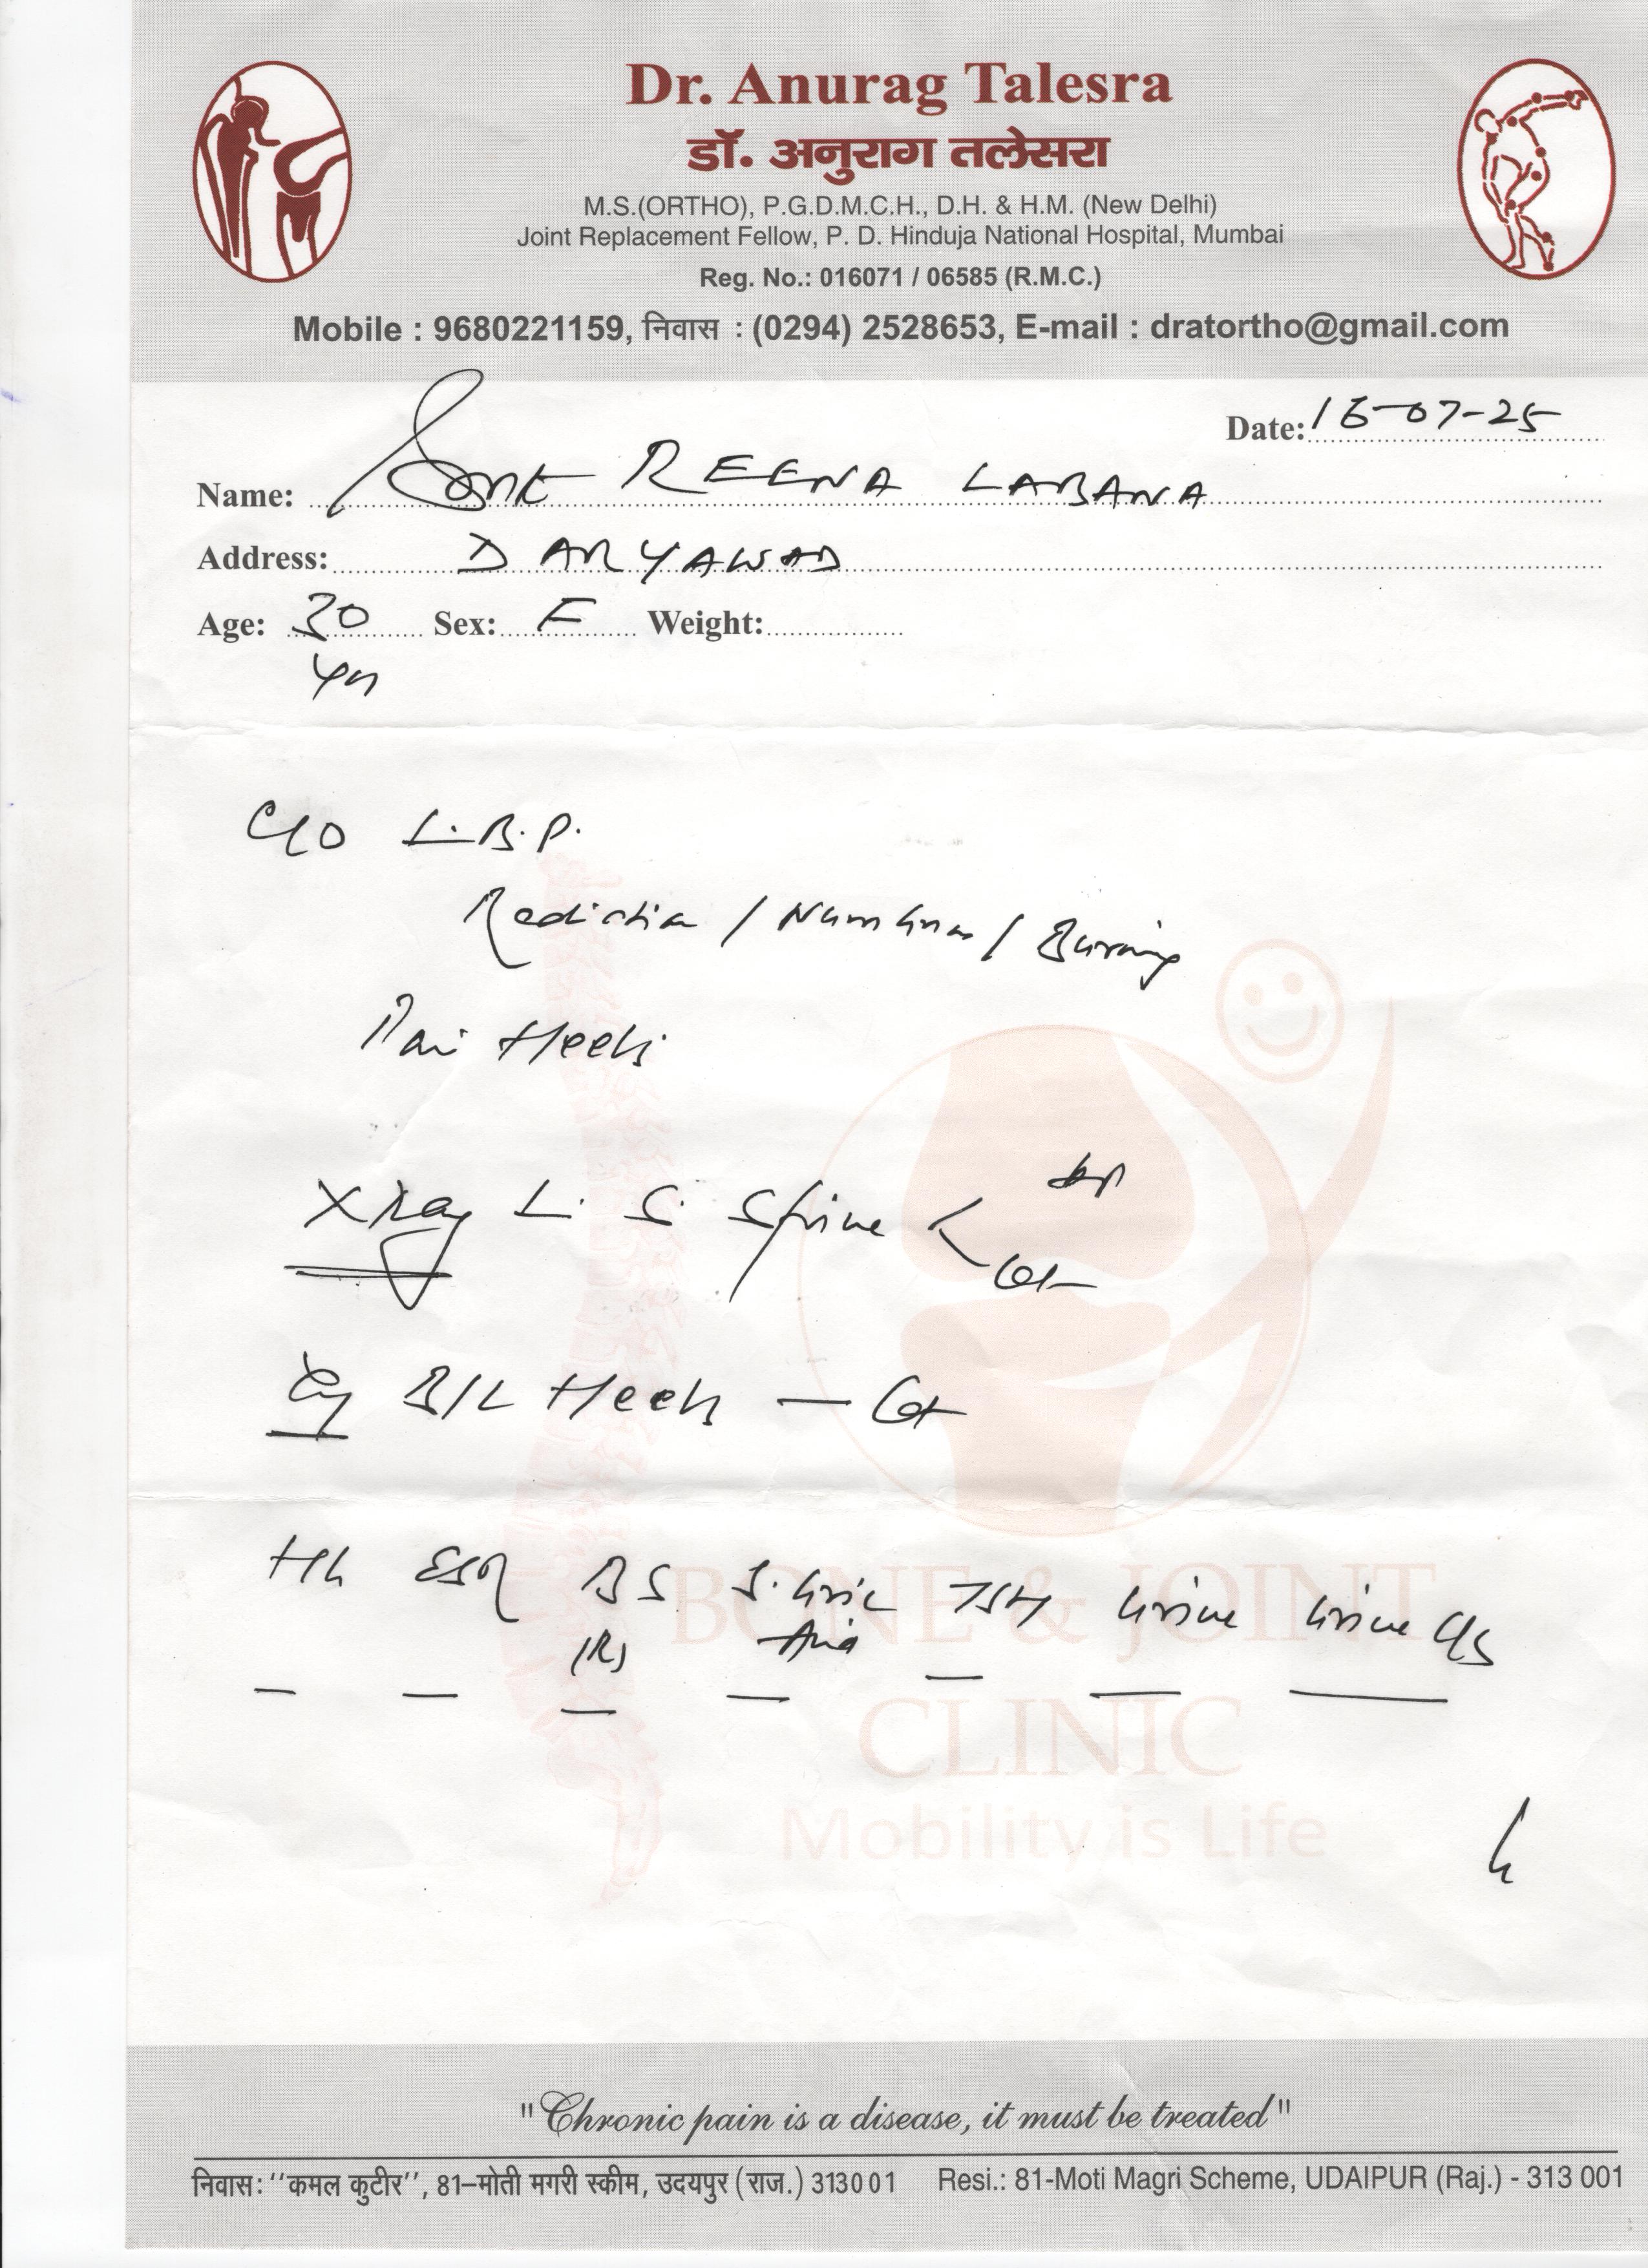 Dr. Anurag Talesra
डॉ. अनुराग तलेसरा
M.S.(ORTHO), P.G.D.M.C.H., D.H. & H.M. (New Delhi)
Joint Replacement Fellow, P. D. Hinduja National Hospital, Mumbai
Reg. No.: 016071 / 06585 (R.M.C.)
Mobile : 9680221159, निवास : (0294) 2528653, E-mail : dratortho@gmail.com
Date: 16-07-25
Name: Smt REENA LABANA
Address: DARYAWAD
Age: 30 Sex: F Weight:
yrs
C/O L.B.P.
Radiation / Numbness / Burning
Pain Heels
X Ray L. S. Spine < AP
Lat
B/L Heels — Lat
Hb ESR BS S. Uric TSH Urine Urine C/S
(R) Acid
BONE & JOINT
CLINIC
Mobility is Life
"Chronic pain is a disease, it must be treated"
निवास: ''कमल कुटीर'', 81–मोती मगरी स्कीम, उदयपुर (राज.) 313001 Resi.: 81-Moti Magri Scheme, UDAIPUR (Raj.) - 313 001